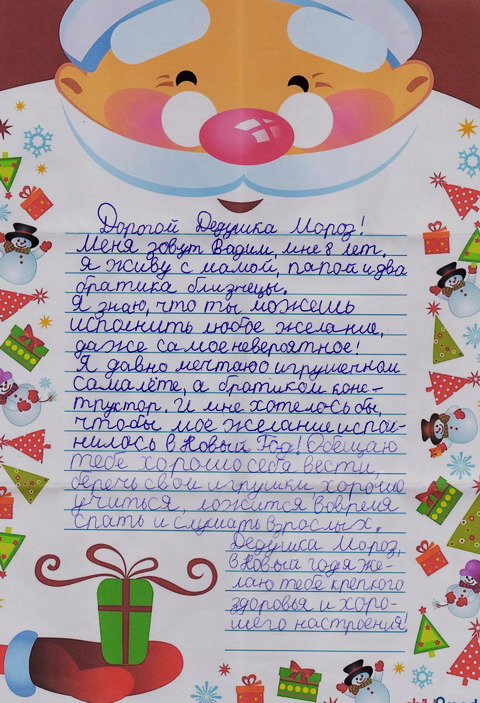 Дорогой Дедушка Мороз!
Меня зовут Вадим, мне 8 лет.
Я живу с мамой, папой и два
братика близнецы.
Я знаю, что ты можешь
исполнить любое желание,
даже самое невероятное!
Я давно мечтаю о игрушечном
самалёте, а братиком конс-
труктор. И мне хотелось бы,
чтобы мое желание испол-
нилось в Новый Год! Обещаю
тебе хорошо себя вести,
беречь свои игрушки хорошо
учиться, ложится вовремя
спать и слушать взрослых.
Дедушка Мороз,
в Новый год я же-
лаю тебе крепкого
здоровья и хоро-
шего настроения!